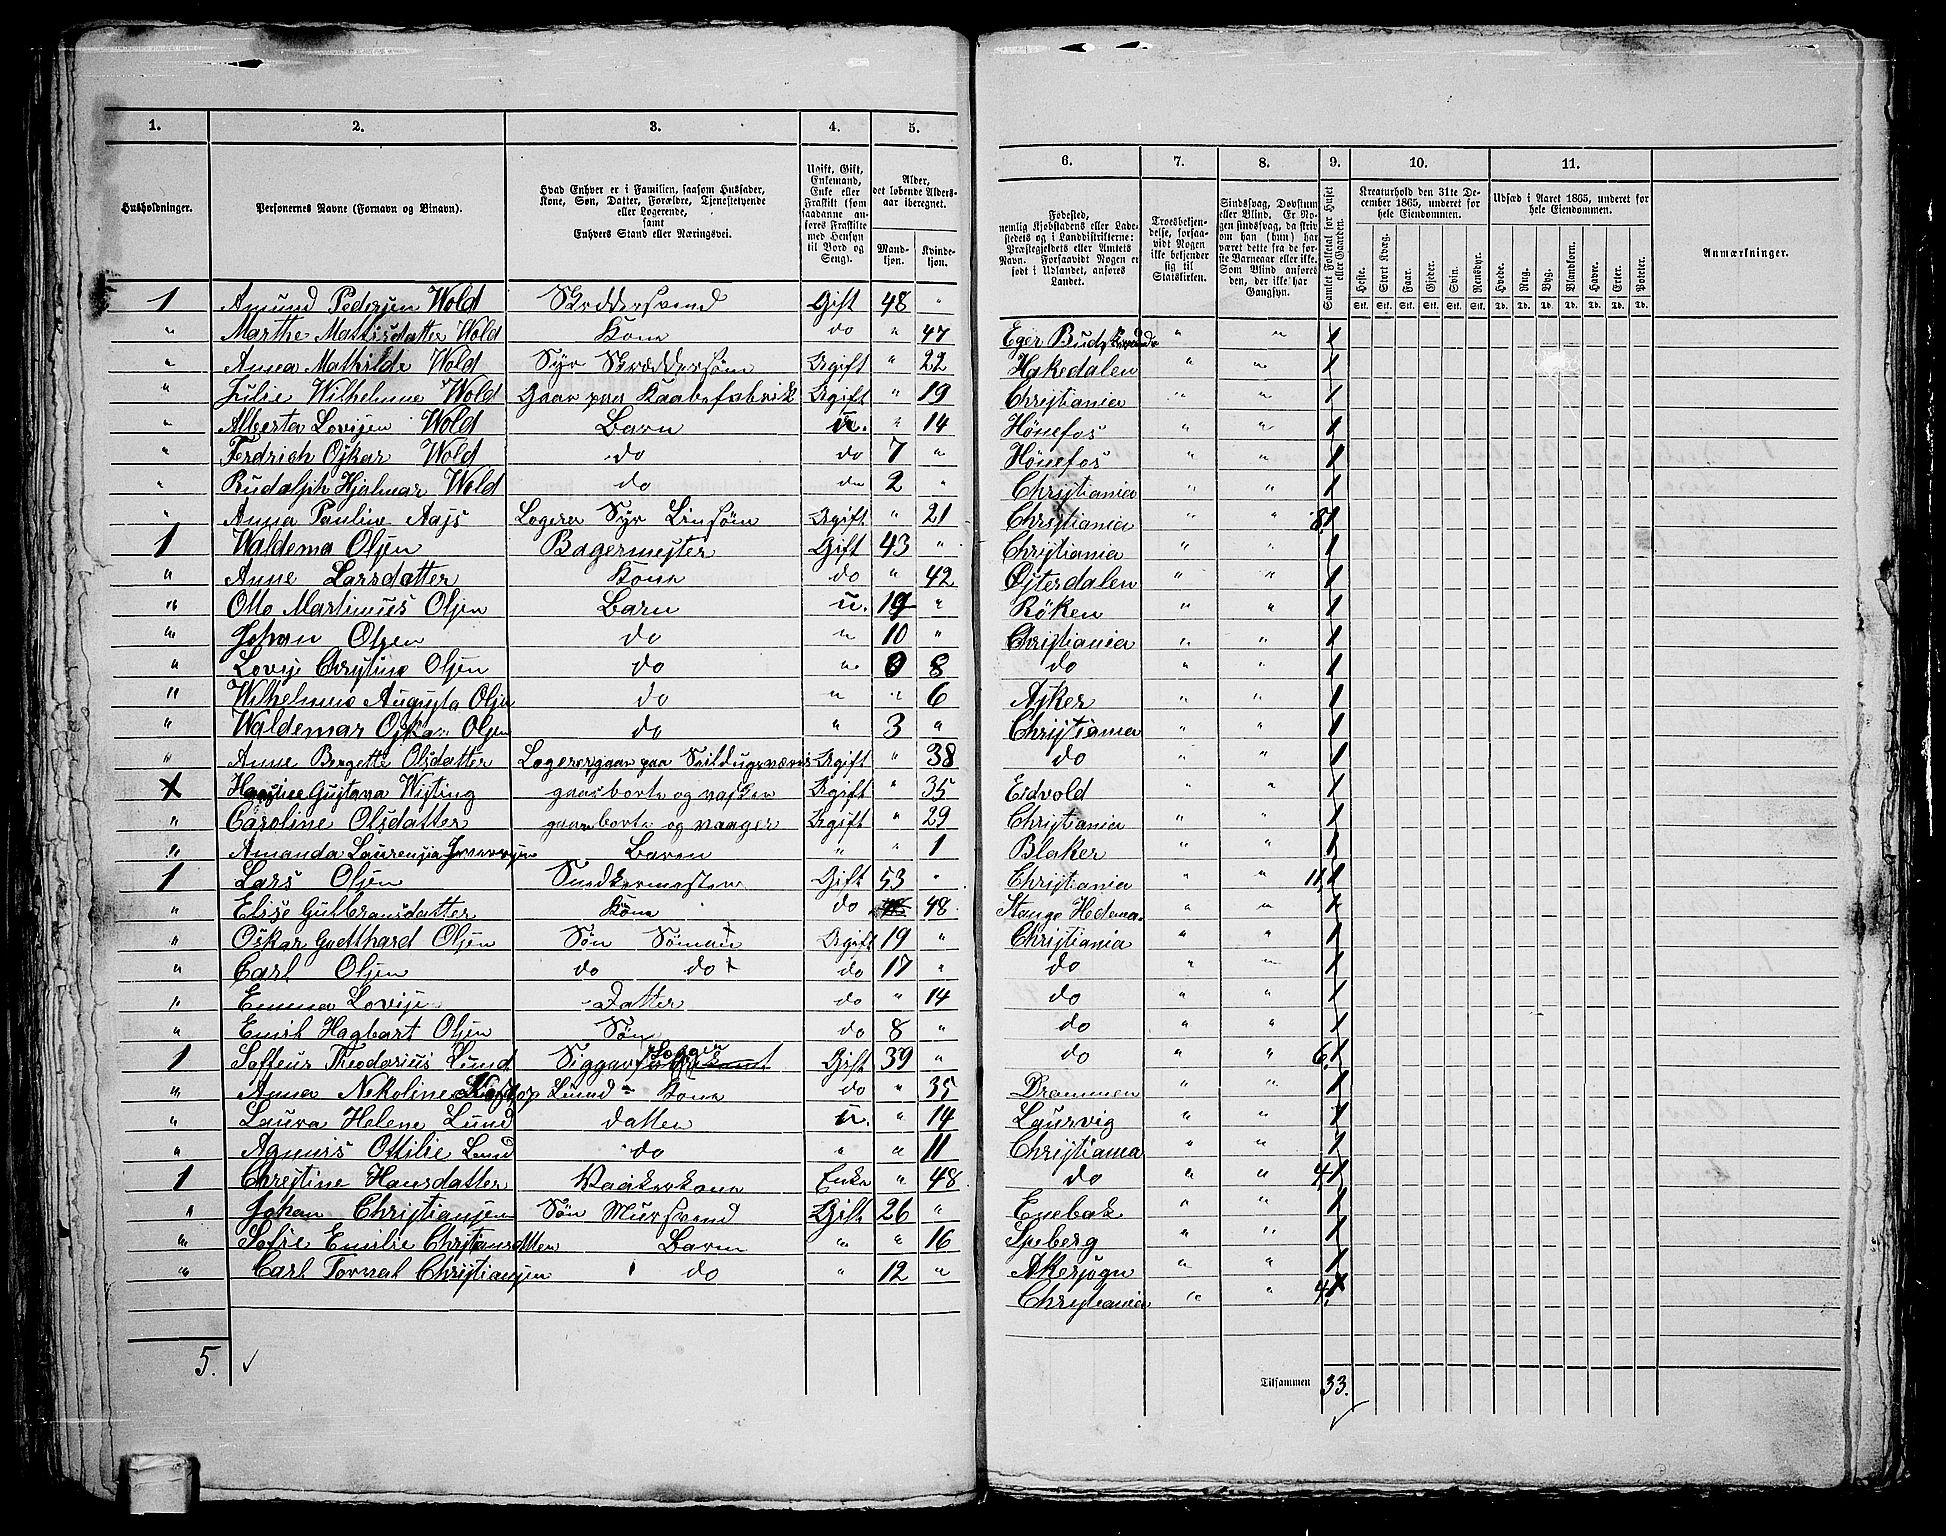 1. 2. 3. 4. 5.
Husholdninger. Personernes Navne (Fornavn og Binavn). Hvad Enhver er i Familien, saasom Husfader, Kone, Søn, Datter, Forældre, Tjenestetyende eller Logerende, samt Enhvers Stand eller Næringsvei. Ugift, Gift, Enkemand, Enke eller Fraskilt (som saadanne anføres Fraskilte med Hensyn til Bord og Seng). Alder, det løbende Aldersaar iberegnet. Mandkjøn. Kvindekjøn.
1 Amund Pedersen Wold Skræddersvend Gift 48 "
" Marthe Mattisdatter Wold Kone do " 47
" Anna Mathilde Wold Syr Skræddersøm Ugift " 22
" Julie Wilhelmine Wold Gaar paa Kaabefabrik Ugift " 19
" Alberta Lovisen Wold Barn u. " 14
" Fredrich Oskar Wold do do 7 "
" Rudolph Hjalmar Wold do do 2 "
" Anna Pauline Aajs Logerer Syr Linsøm Ugift " 21
1 Waldema Olsen Bagermester Gift 43 "
" Anne Larsdatter Kone do " 42
" Otto Martinius Olsen Barn u. 19 "
" Johan Olsen do " 10 "
" Lovise Christine Olsen do " 8
" Wilhelmine Augusta Olsen do " " 6
" Waldemar Oskar Olsen do " 3 "
" Anne Bergette Olsdatter Logerer gaar paa Seildugsvæveri Ugift " 38
Gustava Wisting gaar borte og vasker Ugift " 35
" Caroline Olsdatter gaar borte og vasger Ugift " 29
" Amanda Laurensia Barn " " 1
1 Lars Olsen Snedkermester Gift 53 "
" Elise Gulbransdatter Kone do 48
" Oskar Gotthard Olsen Søn Sømand Ugift 19 "
" Carl Olsen do do do 17 "
" Emma Lovise Datter do " 14
" Emil Hagbart Olsen Søn do 8 "
1 Soffeus Theodorius Lund Gift 39 "
" Anna Nekoline Lund - Kone do " 35
" Laura Helene Lund datter u. " 14
" Agnnis Ottilie Lund do " " 11
1 Christine Hansdatter Vaskerkone Enke " 48
" Johan Christiansen Søn Mursvend Gift 26 "
" Sofie Emilie Christiansdatter Barn " " 16
" Carl Torval Christiansen do " 12 "
5.
6. 7. 8. 9. 10. 11.
Fødested, nemlig Kjøbstadens eller Ladestedets og i Landdistrikterne: Præstegjeldets eller Amtets Navn. Forsaavidt Nogen er født i Udlandet, anføres Landet. Troesbekjendelse, forsaavidt Nogen ikke bekjender sig til Statskirken. Sindssvag, Døvstum eller Blind. Er Nogen sindssvag, da skrives om han (hun) har været dette fra de første Barneaar eller ikke. Som Blind anføres den, der ikke har Gangsyn. Samlet Folketal for Huset eller Gaarden. Kreaturhold den 31te December 1865, underet for hele Eiendommen. Udsæd i Aaret 1865, underet for hele Eiendommen. Anmærkninger.
Heste. Stort Kvæg. Faar. Gjeder. Svin. Rensdyr. Hvede. Rug. Byg. Blandkorn. Havre. Erter. Poteter.
Stk. Stk. Stk. Stk. Stk. Stk. Td. Td. Td. Td. Td. Td. Td.
Eger Budskerud " " 1
Hakedalen " " 1
Christiania " " 1
Hönefos " " 1
Hönefos " " 1
Christiania " " 1
Christiania " " 8. 1
Christiania " " 1
Østerdalen " " 1
Röken " " 1
Christiania " " 1
do " " 1
Asker " " 1
Christiania " " 1
do " " 1
Eidvold " " 1
Christiania " " 1
Blaker " " 1
Christiania " " 11. 1
Stange Hedema. " " 1
Christiania " " 1
do " " 1
do " " 1
do " " 1
do " " 6. 1
Drammen " " 1
Laurvig " " 1
Christiania " " 1
do " " 4. 1
Enebak " " 1
Speberg " " 1
Akersogn " " 1
Christiania " " 4. 1
Tilsammen 33.